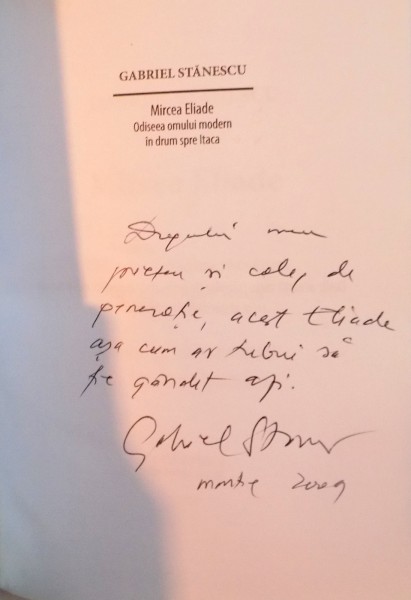 GABRIEL STĂNESCU
Mircea Eliade
Odiseea omului modern
în drum spre Itaca
Dragului meu
prieten și coleg de
generație, acest Eliade
așa cum ar trebui să
fie gândit azi.
Gabriel Stănescu
martie 2009